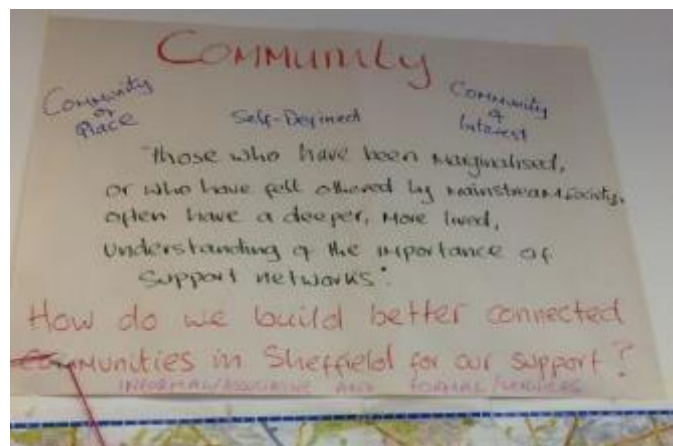 Community
Community of Place
Self-Defined
Community of Interest
"Those who have been marginalised,
or who have felt othered by mainstream society,
often have a deeper, more lived,
understanding of the importance of
support networks".
How do we build better connected
communities in Sheffield for our support?
INFORMAL/ AND FORMAL/SERVICES